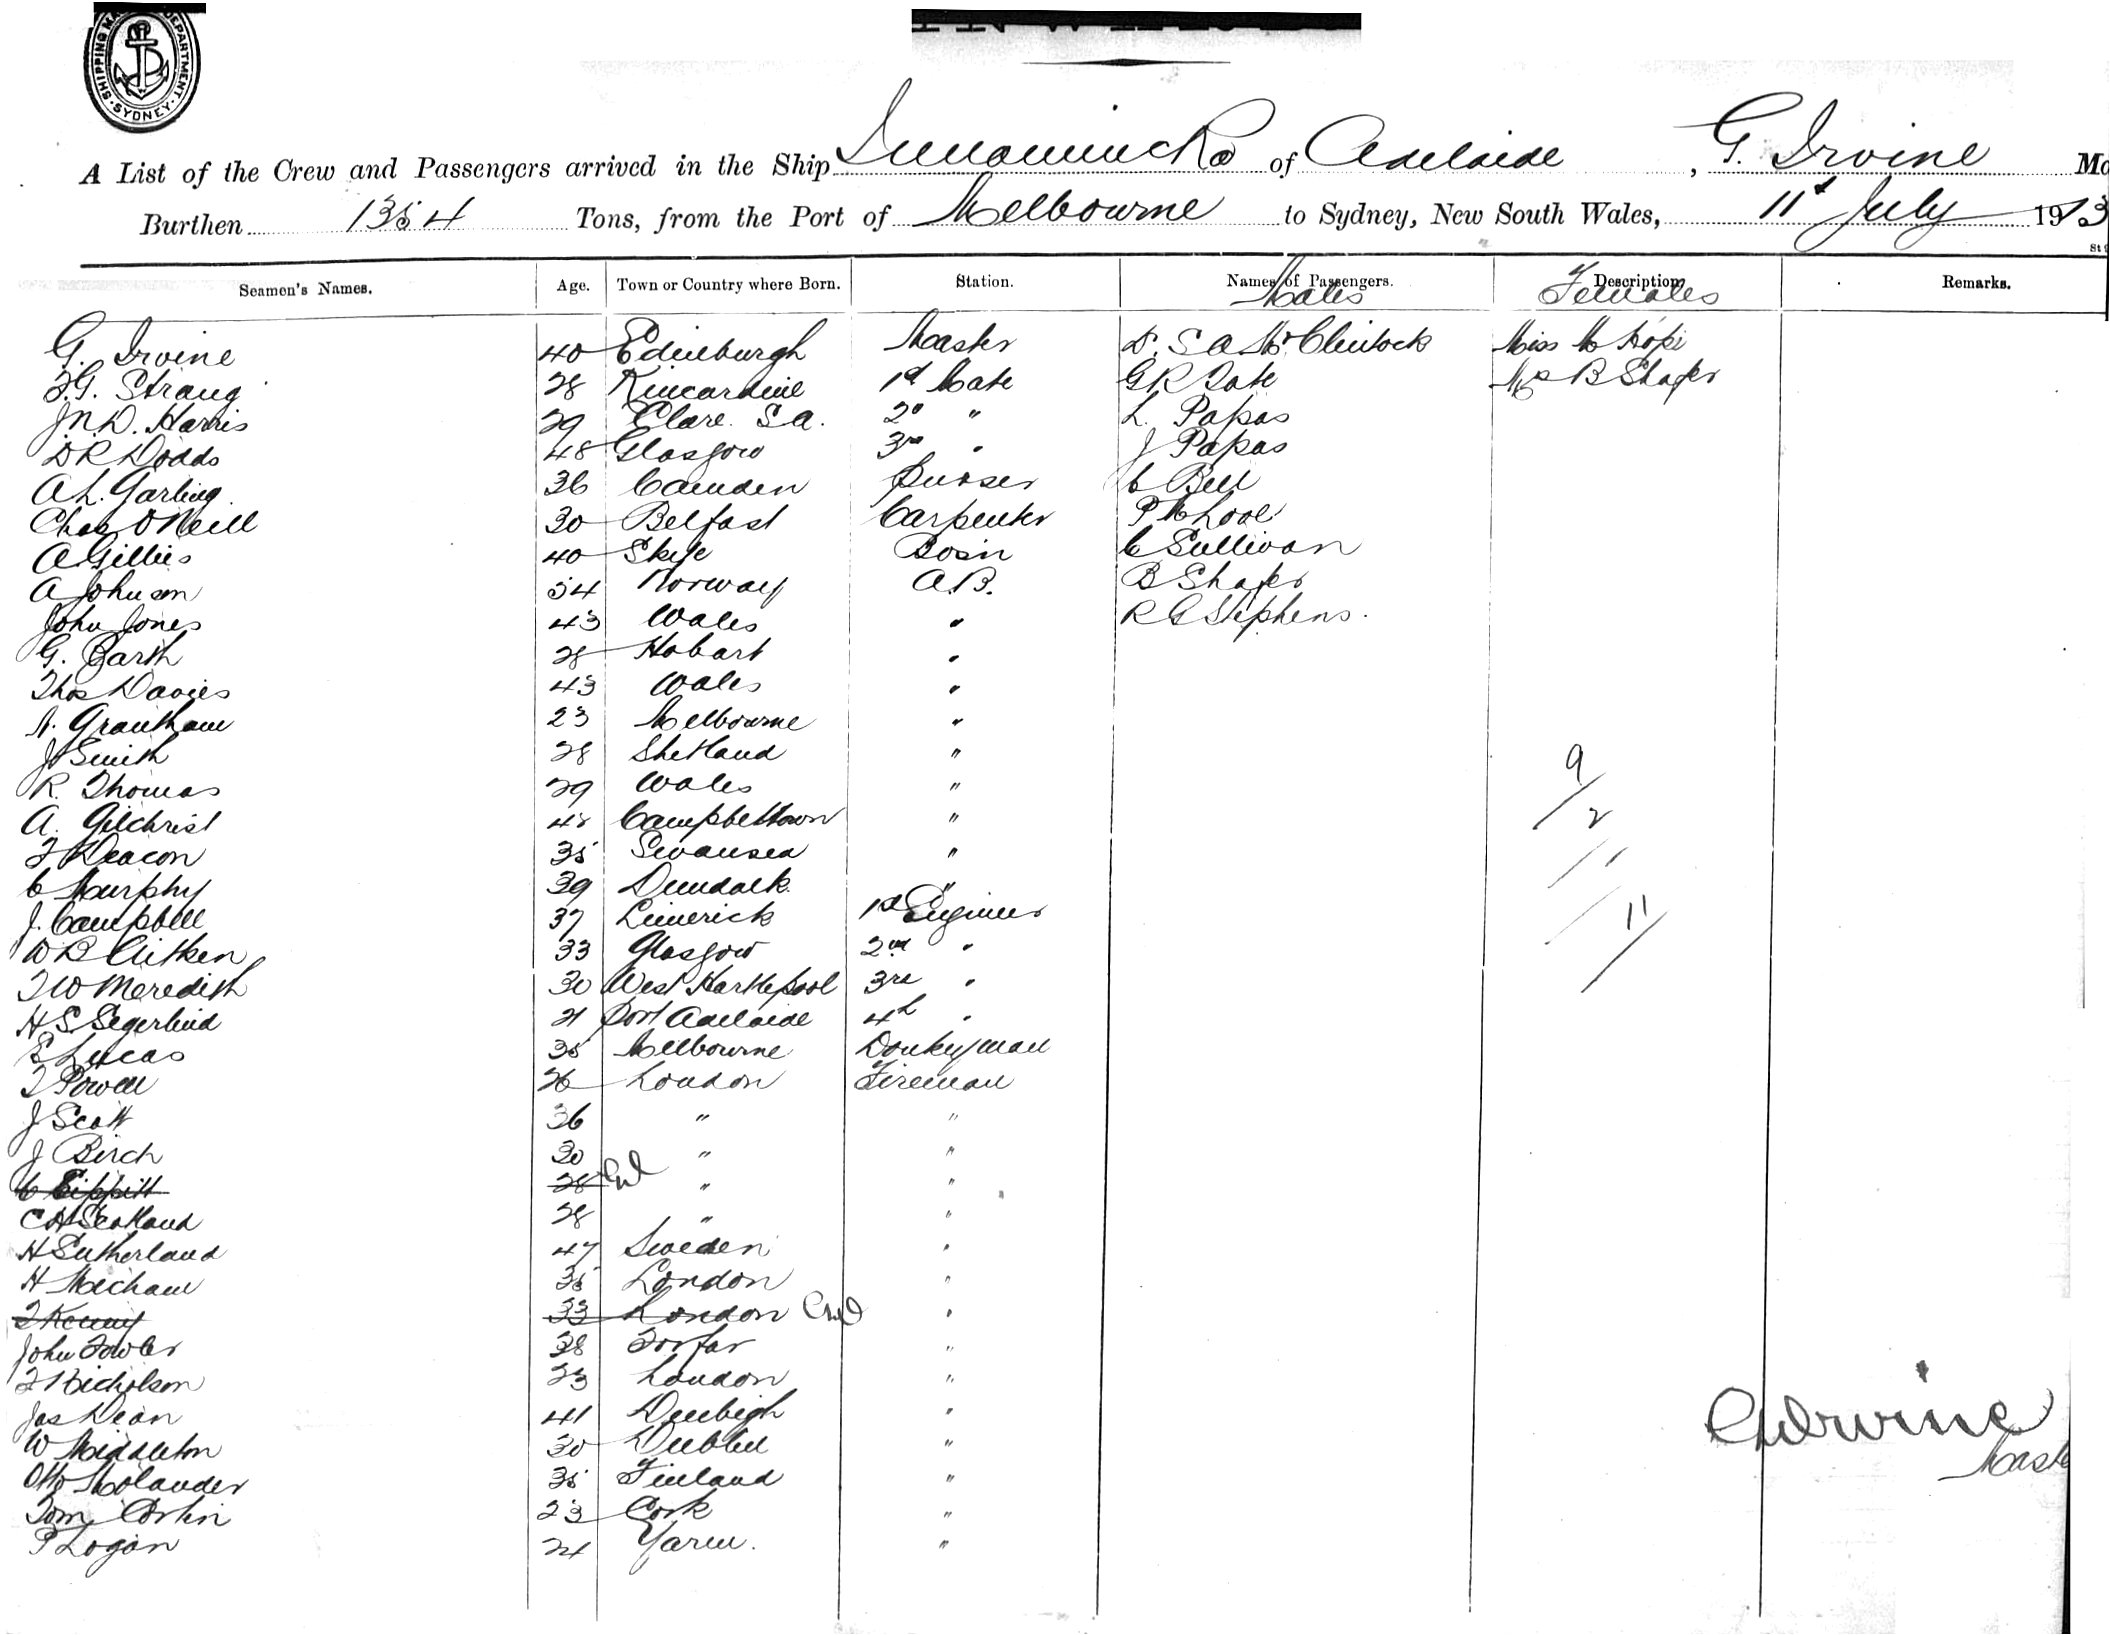 SHIPPING DEPARTMENT. SYDNEY
A List of the Crew and Passengers arrived in the Ship Innamincka of Adelaide, G. Irvine
Burthen 1354 Tons, from the Port of Melbourne to Sydney, New South Wales, 11th July 1913
Seamen's Names. Age. Town or Country where Born. Station. Names of Passengers. Description Remarks.
Males Females
G. Irvine 40 Edinburgh Master D. S A McClintock Miss M Hope
F.G. Strang 28 Kincardine 1st Mate G R Tate Mrs B Shafer
J.N.D. Harris 29 Clare. S.A. 2d " L. Papas
D R Dodds 48 Glasgow 3rd " J Papas
A L. Garling 36 Camden Purser C Bell
Chas O'Neill 30 Belfast Carpenter P
A Gillies 40 Skye Bosn C Sullivan
A Johnson 54 Norway A.B. B Shafer
John Jones 43 Wales " R G Stephens.
G. Barth 28 Hobart "
Thos Davies 43 Wales "
A. Grantham 23 Melbourne "
J Smith 28 Shetland "
R. Thomas 29 Wales " 9
A. Gilchrist 48 Campbeltown " 2
F Deacon 35 Swansea "
C Murphy 39 Dundalk "
J. Campbell 37 Limerick 1st Engineer 11
W B Aitken 33 Glasgow 2nd "
T W Meredith 30 West Hartlepool 3rd "
H S. Segerlind 21 Port Adelaide 4th "
E Lucas 35 Melbourne Donkeyman
T Powell 26 London Fireman
J Scott 36 " "
J Birch 30 " "
C Tippitt 28 " "
C H Scotland 28 " "
H Sutherland 47 Sweden "
H Mecham 35 London "
T Kenny 33 London "
John Fowler 38 Forfar "
T Nicholson 23 London "
Jas Dean 41 Denbigh "
W Middleton 30 Dublin "
Otto Molander 35 Finland "
Tom Corbin 23 Cork "
P Logan 24 Yarm. "
G Irvine
Master